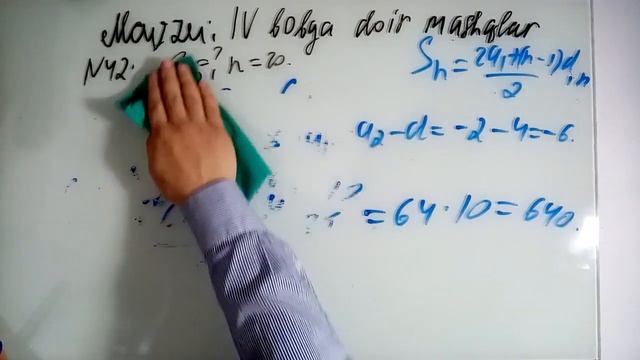 Mavzu: IV bobga doir mashqlar
N42. =? n=20. Sn = 2a1+(n-1)d/2 · n
a2-d=-2-4=-6.
=64·10=640.